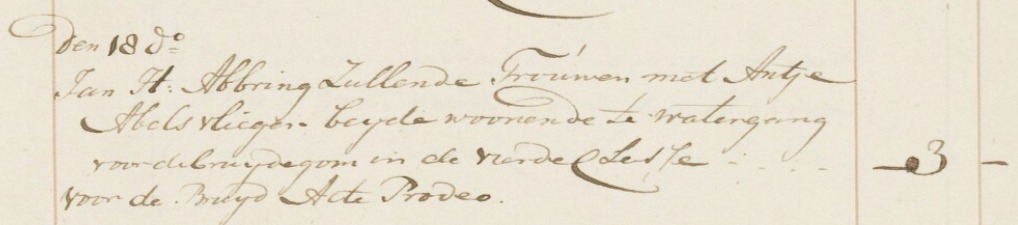 Den 18 do
Jan H: Abbring Zullende Trouwen met Antje
Abels vlieger beyde woonende te watergang
voor de bruydegom in de vierde Classe - - - 3 -
voor de Bruyd Acte Prodeo.